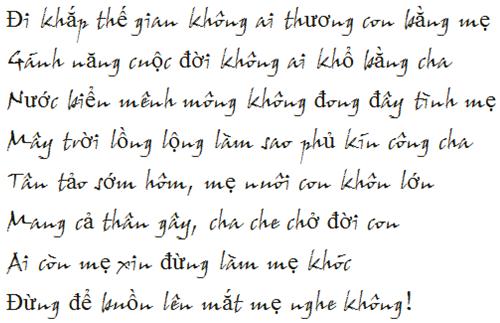 Đi khắp thế gian không ai thương con bằng mẹ
Gánh năng cuộc đời không ai khổ bằng cha
Nước biển mênh mông không đong đây tình mẹ
Mây trời lồng lộng làm sao phủ kín công cha
Tân tảo sớm hôm, mẹ nuôi con khôn lớn
Mang cả thân gây, cha che chở đời con
Ai còn mẹ xin đừng làm mẹ khóc
Đừng để buồn lên mắt mẹ nghe không!